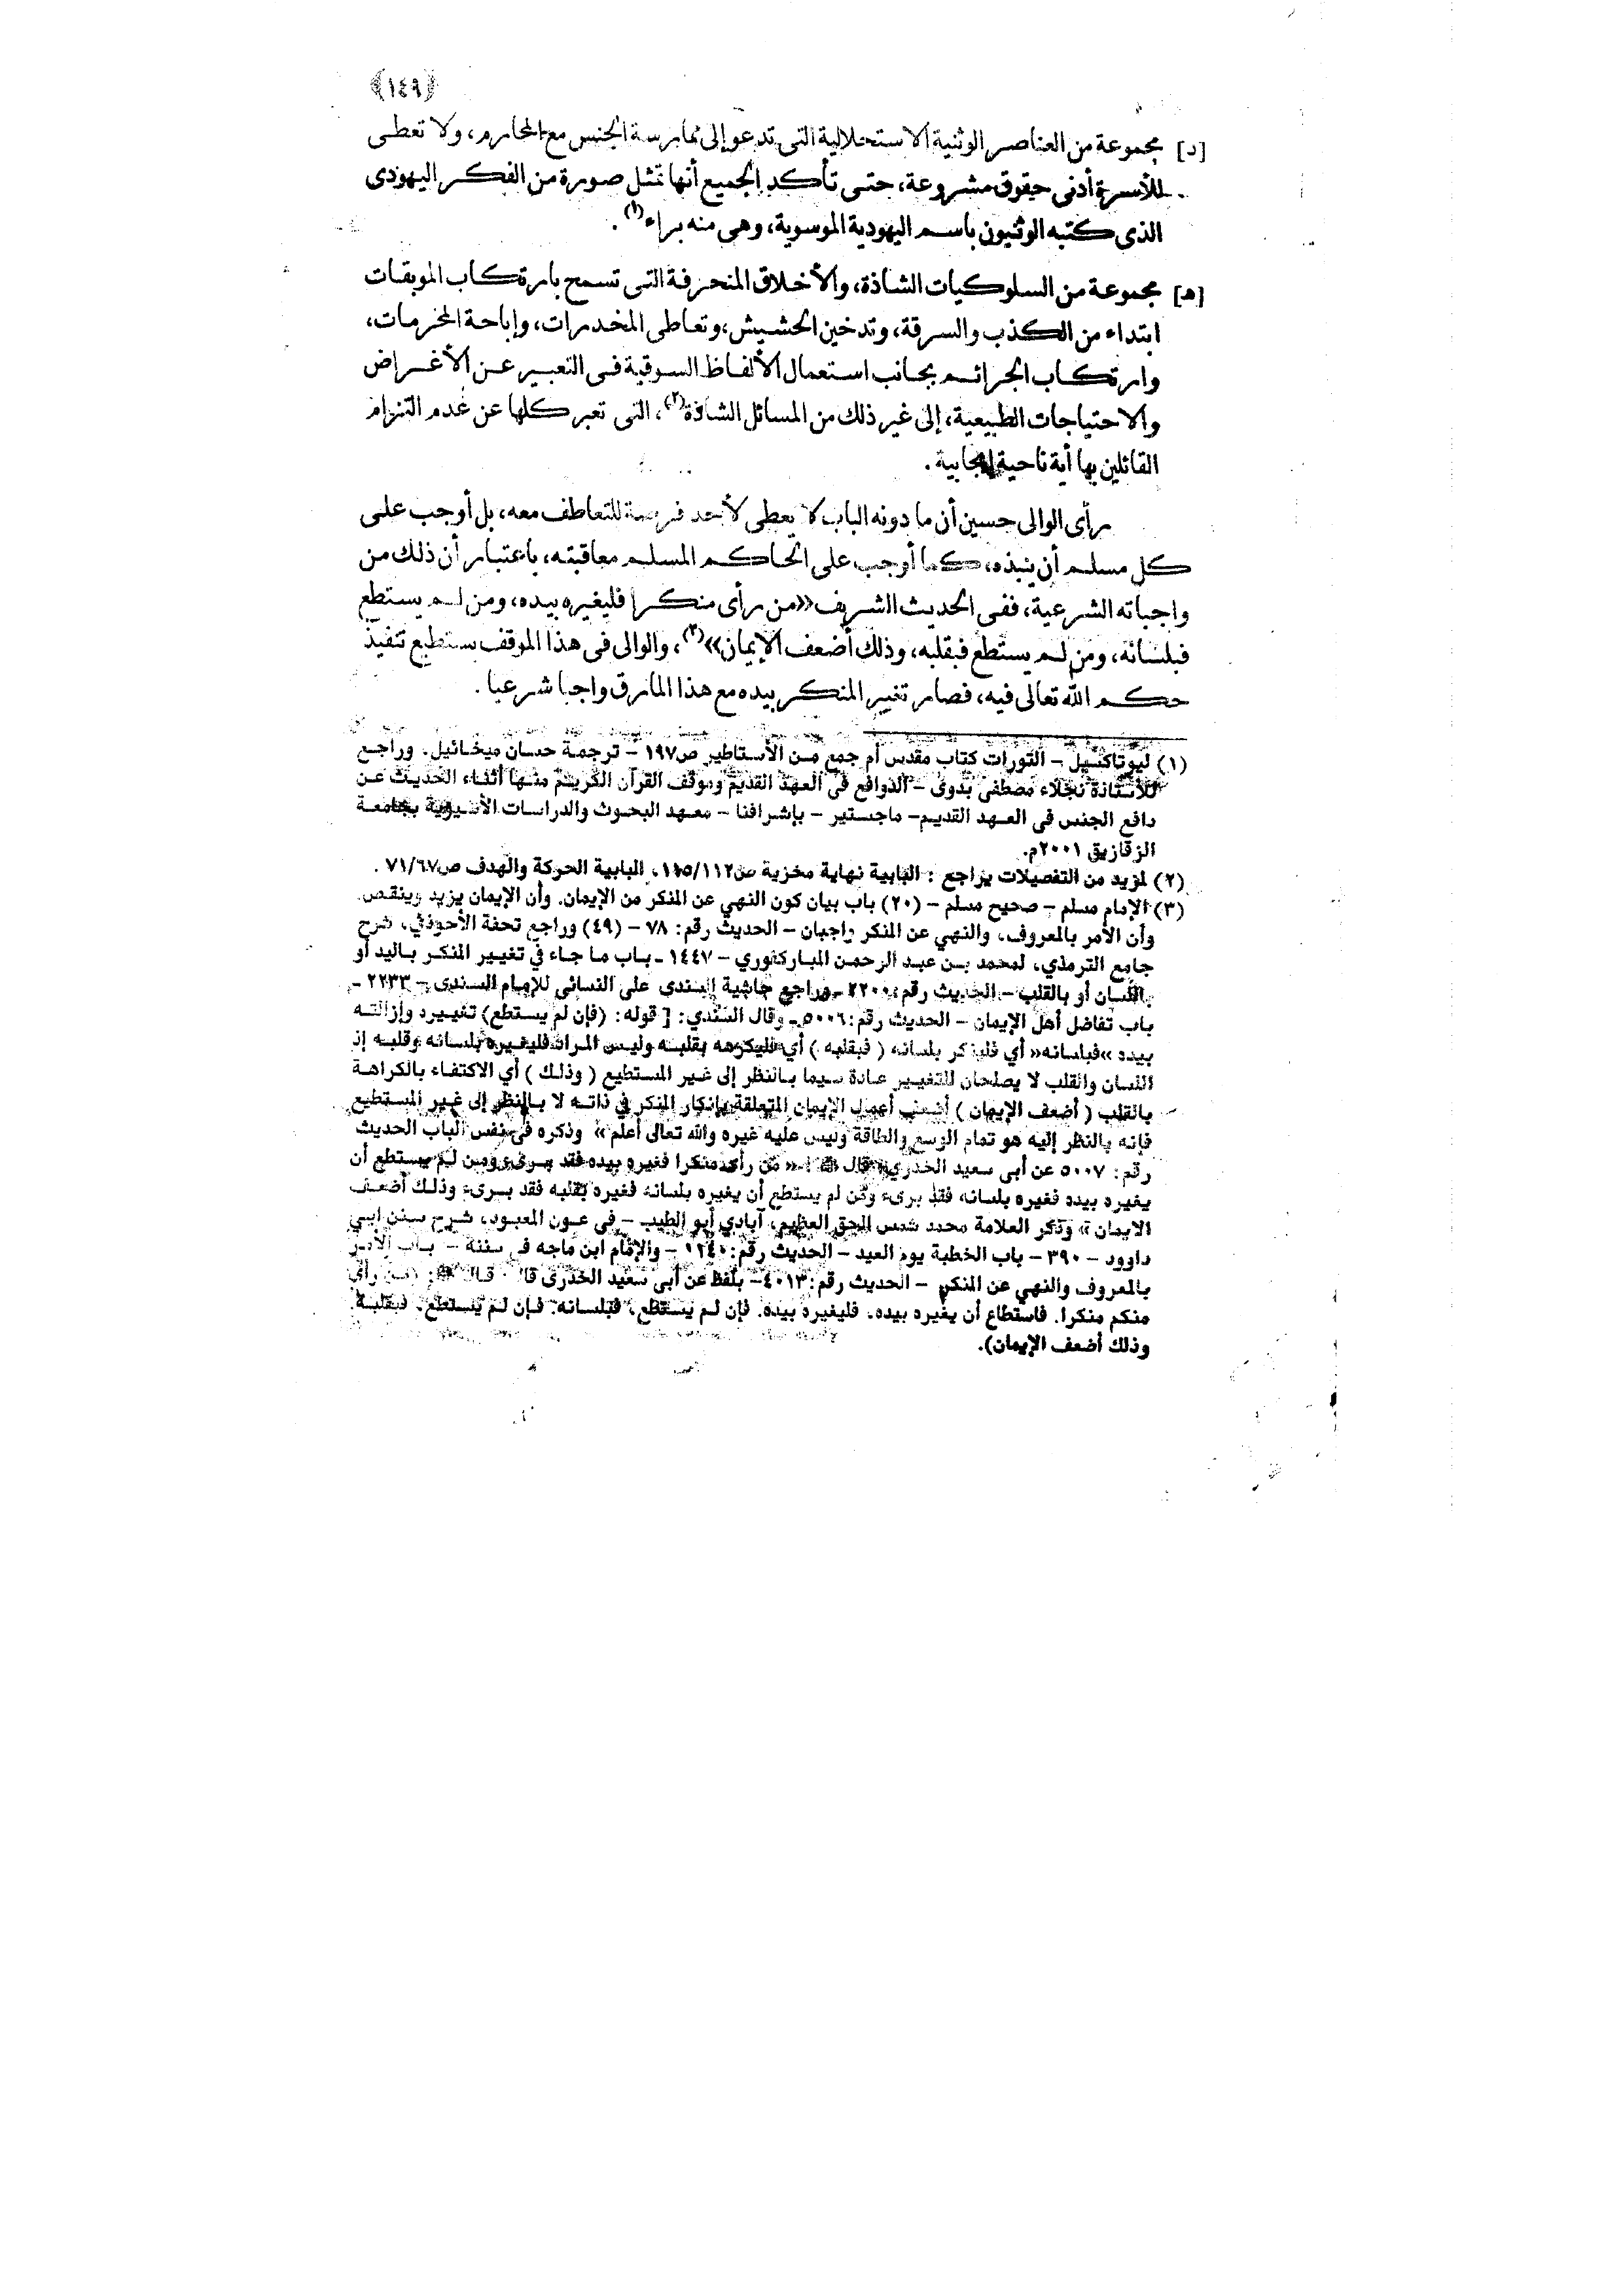 ﴿١٤٩﴾
[د] مجموعة من العناصر الوثنية الاستحلالية التى تدعو إلى ممارسة الجنس مع المحارم، ولا تعطى
للأسرة أدنى حقوق مشروعة، حتى تأكد الجميع أنها تمثل صورة من الفكر اليهودى
الذى كتبه الوثنيون باسم اليهودية الموسوية، وهى منه براء(١).
[هـ] مجموعة من السلوكيات الشاذة، والأخلاق المنحرفة التى تسمح بارتكاب الموبقات
ابتداء من الكذب والسرقة، وتدخين الحشيش، وتعاطى المخدرات، وإباحة المحرمات،
وارتكاب الجرائم بجانب استعمال الألفاظ السوقية فى التعبير عن الأغراض
والاحتياجات الطبيعية، إلى غير ذلك من المسائل الشاذة(٢)، التى تعبر كلها عن عدم التزام
القائلين بها أية ناحية إيجابية.
رأى الوالى حسين أن ما دونه الباب لا يعطى لأحد فرصة للتعاطف معه، بل أوجب على
كل مسلم أن ينبذه، كما أوجب على الحاكم المسلم معاقبته، باعتبار أن ذلك من
واجباته الشرعية، ففى الحديث الشريف «من رأى منكرا فليغيره بيده، ومن لم يستطع
فبلسانه، ومن لم يستطع فبقلبه، وذلك أضعف الإيمان»(٣)، والوالى فى هذا الموقف يستطيع تنفيذ
حكم الله تعالى فيه، فصار تغيير المنكر بيده مع هذا المارق واجبا شرعيا.
(١) ليوتاكسيل – التورات كتاب مقدس أم جمع من الأساطير ص١٩٧ – ترجمة حسان ميخائيل. وراجع
للأستاذة نجلاء مصطفى بدوى – الدوافع فى العهد القديم وموقف القرآن الكريم منها أثناء الحديث عن
دافع الجنس فى العهد القديم– ماجستير – بإشرافنا – معهد البحوث والدراسات الأسيوية بجامعة
الزقازيق ٢٠٠١م.
(٢) لمزيد من التفصيلات يراجع : البابية نهاية مخزية ص١١٥/١١٢، البابية الحركة والهدف ص٧١/٦٧ .
(٣) الإمام مسلم – صحيح مسلم – (٢٠) باب بيان كون النهي عن المنكر من الإيمان. وأن الإيمان يزيد وينقص.
وأن الأمر بالمعروف، والنهي عن المنكر واجبان – الحديث رقم: ٧٨ – (٤٩) وراجع تحفة الأحوذي، شرح
جامع الترمذي، لمحمد بن عبد الرحمن المباركفوري – ١٤٤٧ ـ باب ما جاء في تغيير المنكر باليد أو
باللسان أو بالقلب – الحديث رقم: ٢٢٠٠ ـ وراجع حاشية السندى على النسائى للإمام السندى – ٢٢٣٣ ـ
باب تفاضل أهل الإيمان – الحديث رقم: ٥٠٠٦ـ وقال السندي: [ قوله: (فإن لم يستطع) تغييره وإزالته
بيده «فبلسانه» أي فلينكر بلسانه ( فبقلبه ) أي فليكرهه بقلبه وليس المراد فليغيره بلسانه وقلبه إذ
اللسان والقلب لا يصلحان للتغيير عادة سيما بالنظر إلى غير المستطيع ( وذلك ) أي الاكتفاء بالكراهة
بالقلب ( أضعف الإيمان ) أضعف أعمال الإيمان المتعلقة بإنكار المنكر في ذاته لا بالنظر إلى غير المستطيع
فإنه بالنظر إليه هو تمام الوسع والطاقة وليس عليه غيره والله تعالى أعلم» وذكره فى نفس الباب الحديث
رقم: ٥٠٠٧ عن أبى سعيد الخدري قال ﷺ «من رأى منكرا فغيره بيده فقد برىء ومن لم يستطع أن
يغيره بيده فغيره بلسانه فقد برىء ومن لم يستطع أن يغيره بلسانه فغيره بقلبه فقد برىء وذلك أضعف
الايمان» وذكر العلامة محمد شمس الحق العظيم، آبادي أبو الطيب – فى عون المعبود، شرح سنن ابي
داوود – ٣٩٠ – باب الخطبة يوم العيد – الحديث رقم: ١١٤٠ – والإمام ابن ماجه فى سننه – باب الأمر
بالمعروف والنهي عن المنكر – الحديث رقم: ٤٠١٣– بلفظ عن أبى سعيد الخدرى قال قال ﷺ: (من رأى
منكم منكرا. فاستطاع أن يغيره بيده. فليغيره بيده. فإن لم يستطع، فبلسانه. فإن لم يستطع، فبقلبه.
وذلك أضعف الإيمان).